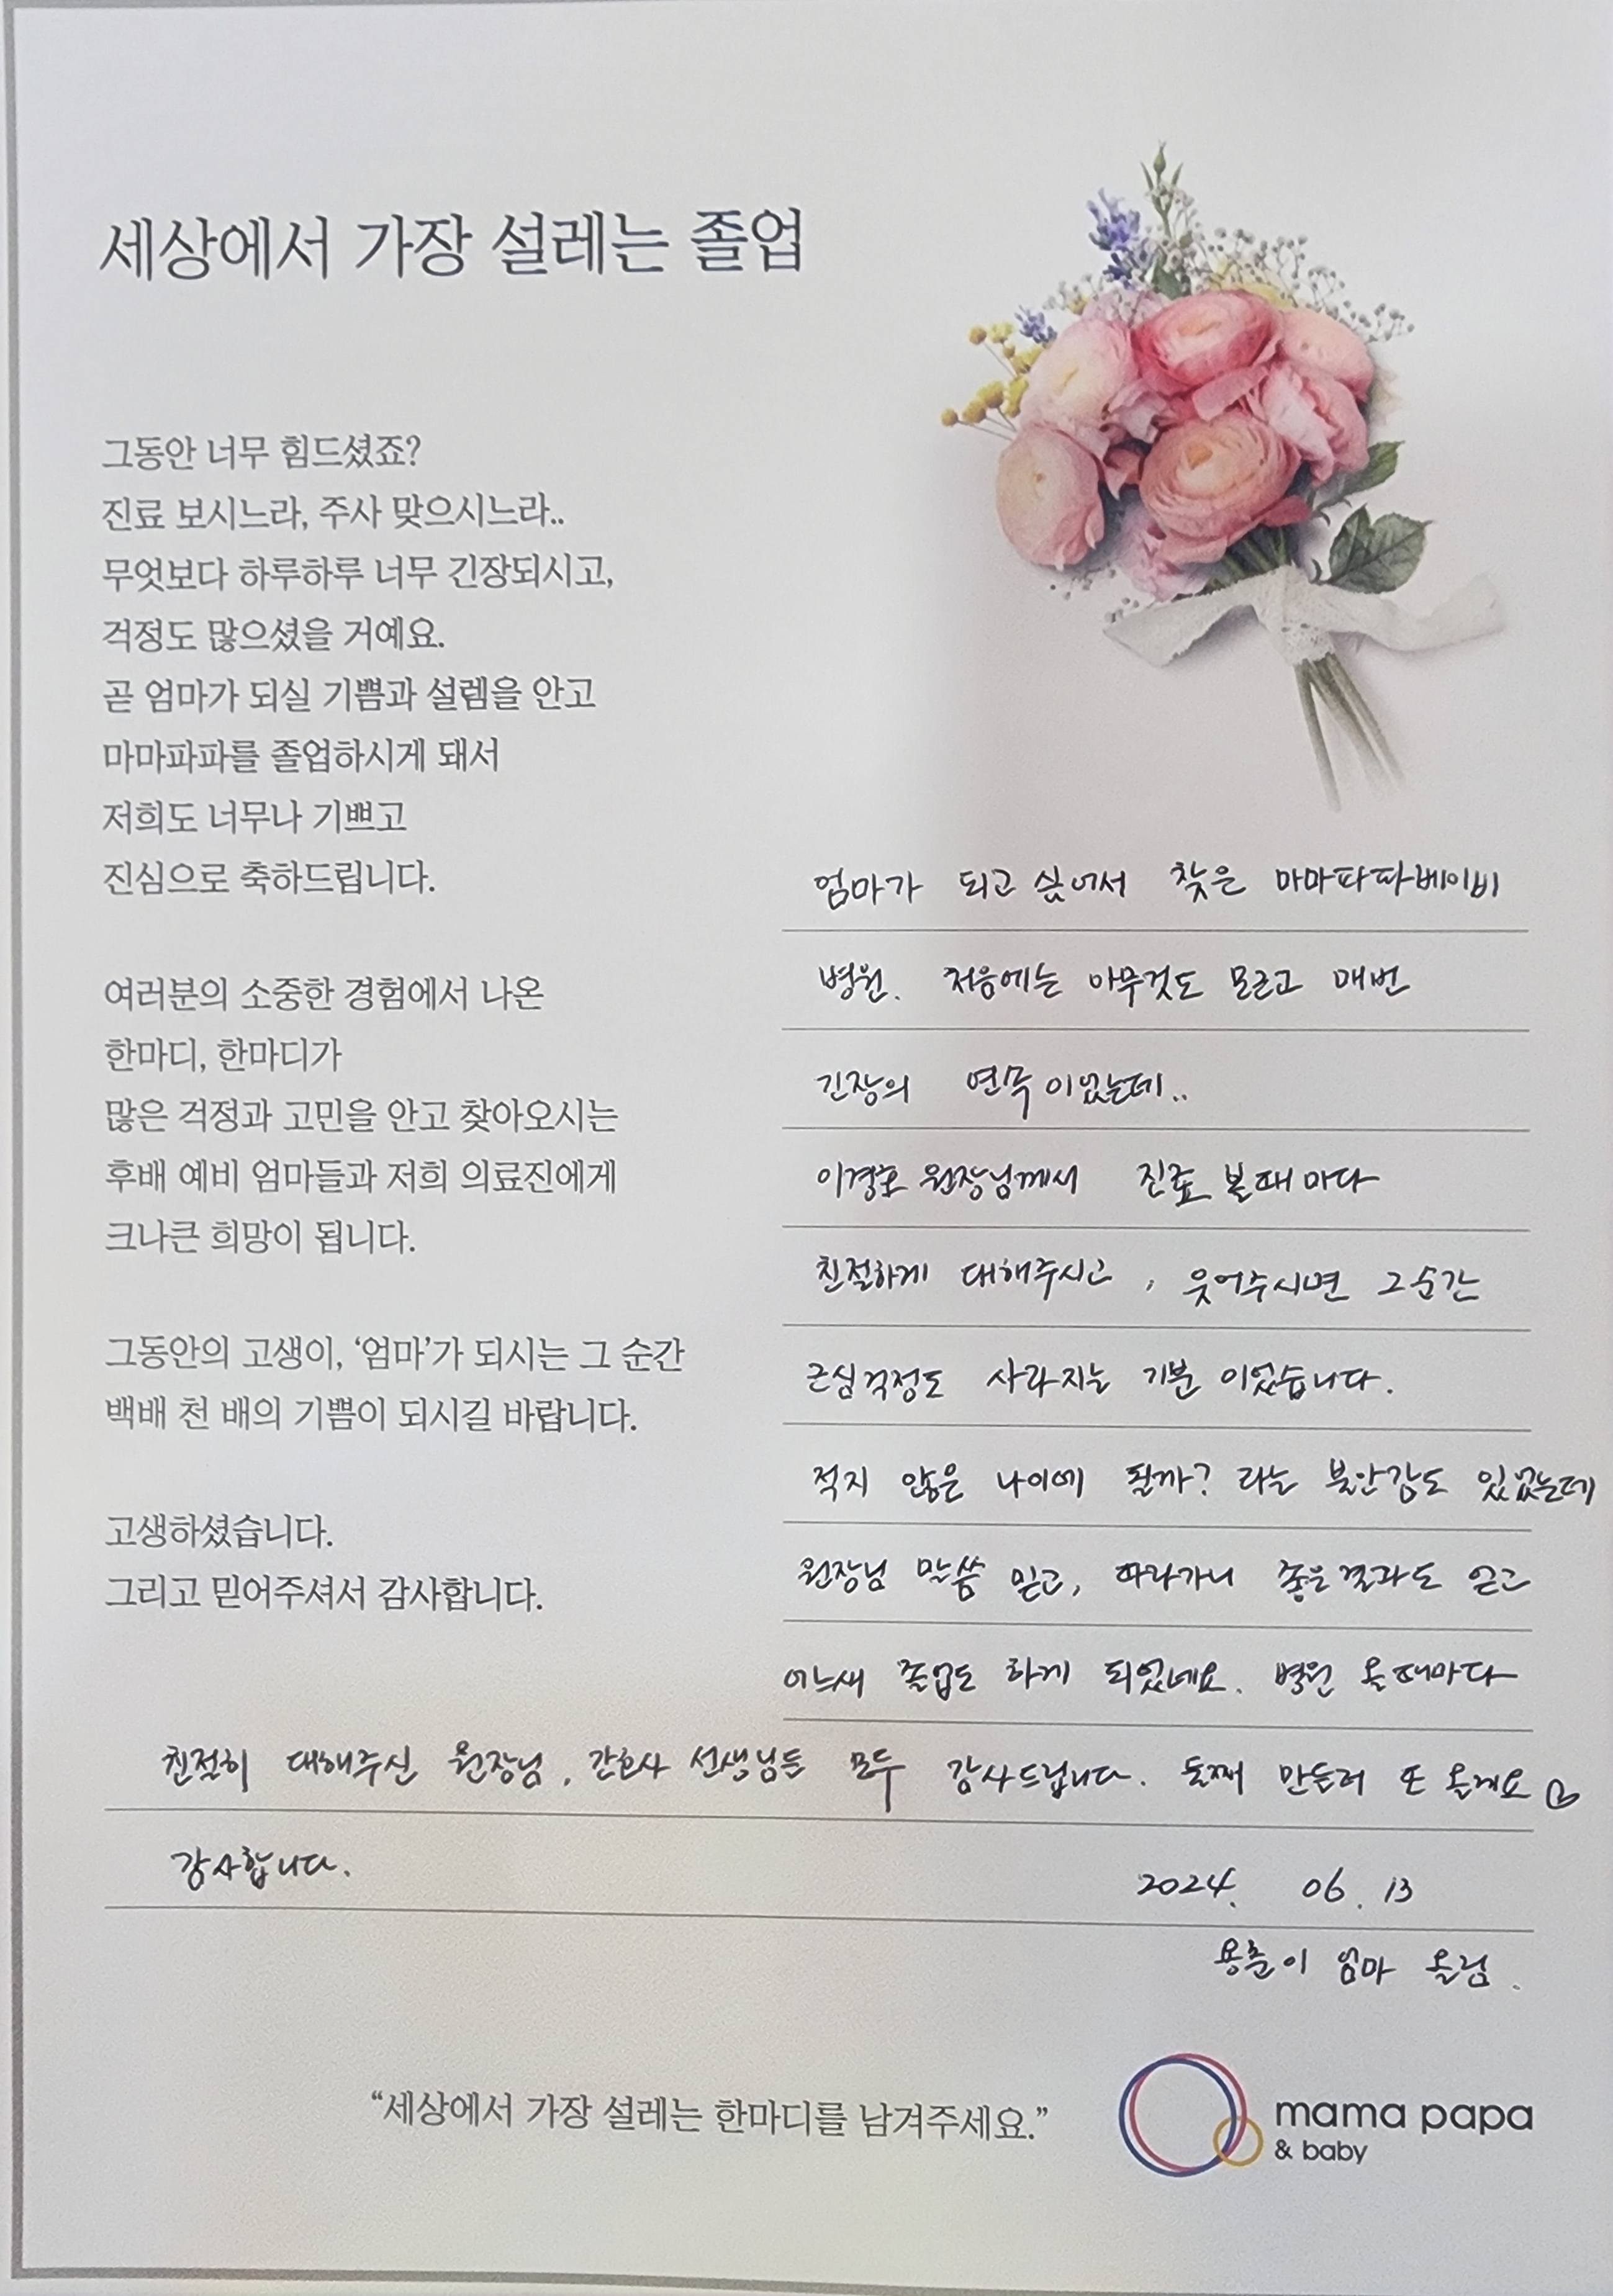 세상에서 가장 설레는 졸업
그동안 너무 힘드셨죠?
진료 보시느라, 주사 맞으시느라..
무엇보다 하루하루 너무 긴장되시고,
걱정도 많으셨을 거예요.
곧 엄마가 되실 기쁨과 설렘을 안고
마마파파를 졸업하시게 돼서
저희도 너무나 기쁘고
진심으로 축하드립니다.
여러분의 소중한 경험에서 나온
한마디, 한마디가
많은 걱정과 고민을 안고 찾아오시는
후배 예비 엄마들과 저희 의료진에게
크나큰 희망이 됩니다.
그동안의 고생이, ‘엄마’가 되시는 그 순간
백배 천 배의 기쁨이 되시길 바랍니다.
고생하셨습니다.
그리고 믿어주셔서 감사합니다.
엄마가 되고 싶어서 찾은 마마파파베이비
병원. 처음에는 아무것도 모르고 매번
긴장의 연속이었는데..
이경호 원장님께서 진료 볼때마다
친절하게 대해주시고, 웃어주시면 그순간
근심걱정도 사라지는 기분이었습니다.
적지 않은 나이에 될까? 라는 불안감도 있었는데
원장님 말씀 믿고, 따라가니 좋은결과도 얻고
어느새 졸업도 하게 되었네요. 병원 올때마다
친절히 대해주신 원장님, 간호사 선생님들 모두 감사드립니다. 둘째 만들러 또 올게요
감사합니다.
2024. 06. 13
용춘이 엄마 올림.
“세상에서 가장 설레는 한마디를 남겨주세요.”
mama papa
& baby